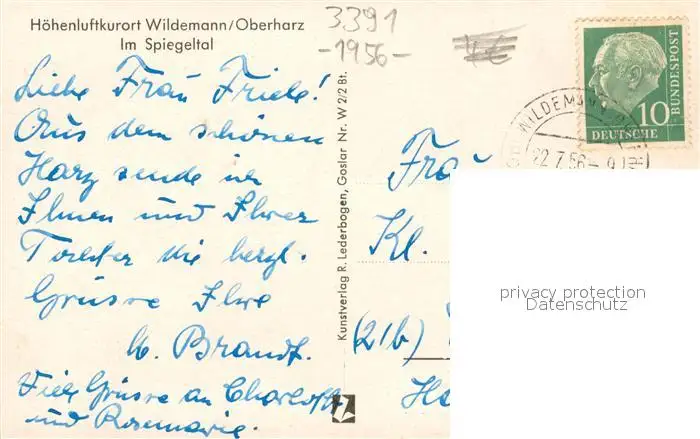 Höhenluftkurort Wildemann/Oberharz
Im Spiegeltal
3391
-1956-
4€
Liebe Frau Friele!
Aus dem schönen
Harz sende ich
Ihnen und Ihrer
Tochter die herzl.
Grüsse Ihre
M. Brandt.
Viele Grüsse an Charlotte
und Rosemarie.
Kunstverlag R. Lederbogen, Goslar Nr. W 2/2 Bt.
10
DEUTSCHE
BUNDESPOST
WILDEMANN
22.7.56
Frau
Kl.
(21b)
privacy protection
Datenschutz